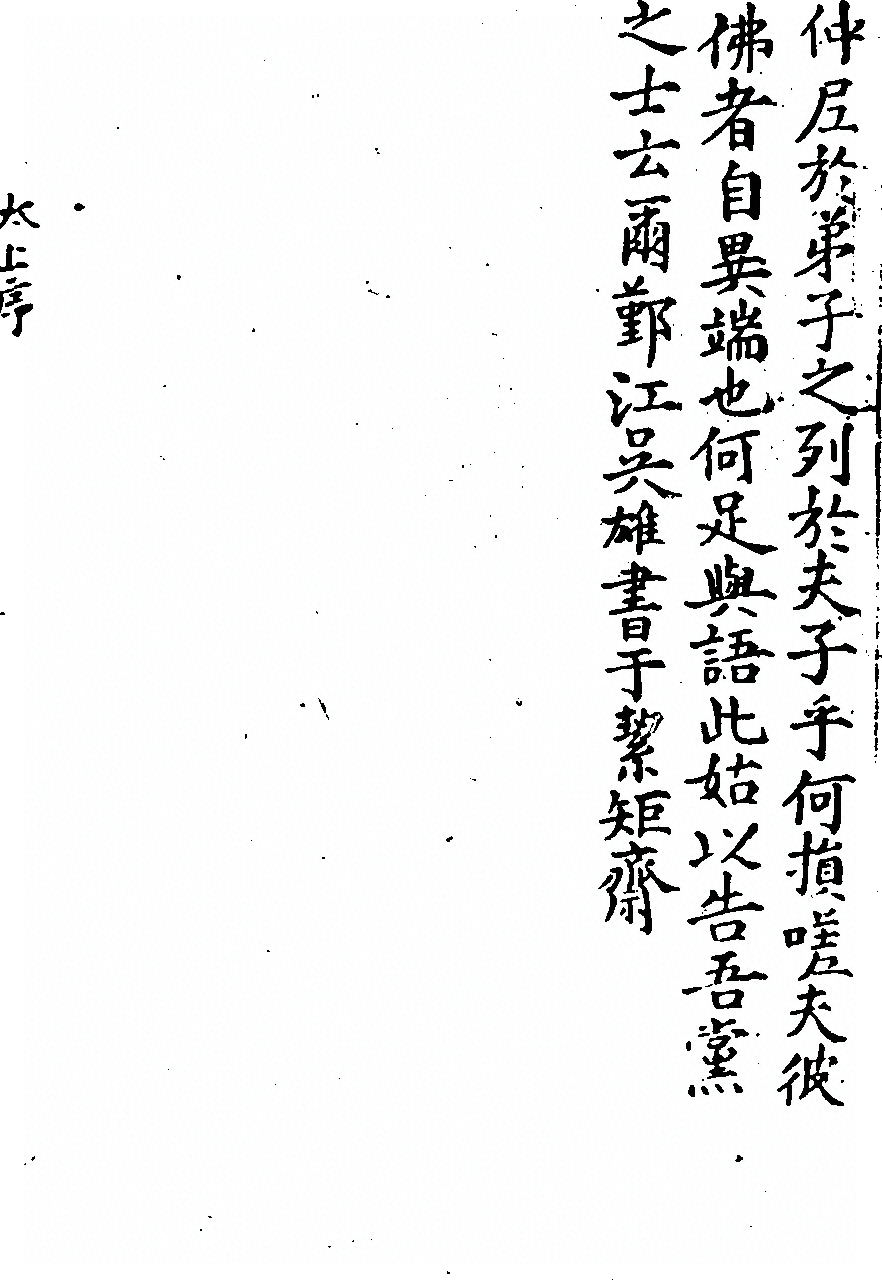 仲尼於弟子之列於夫子乎何損嗟夫彼
佛者自異端也何足與語此姑以告吾黨
之士云爾鄞江吳雄書于絜矩齋
太上序